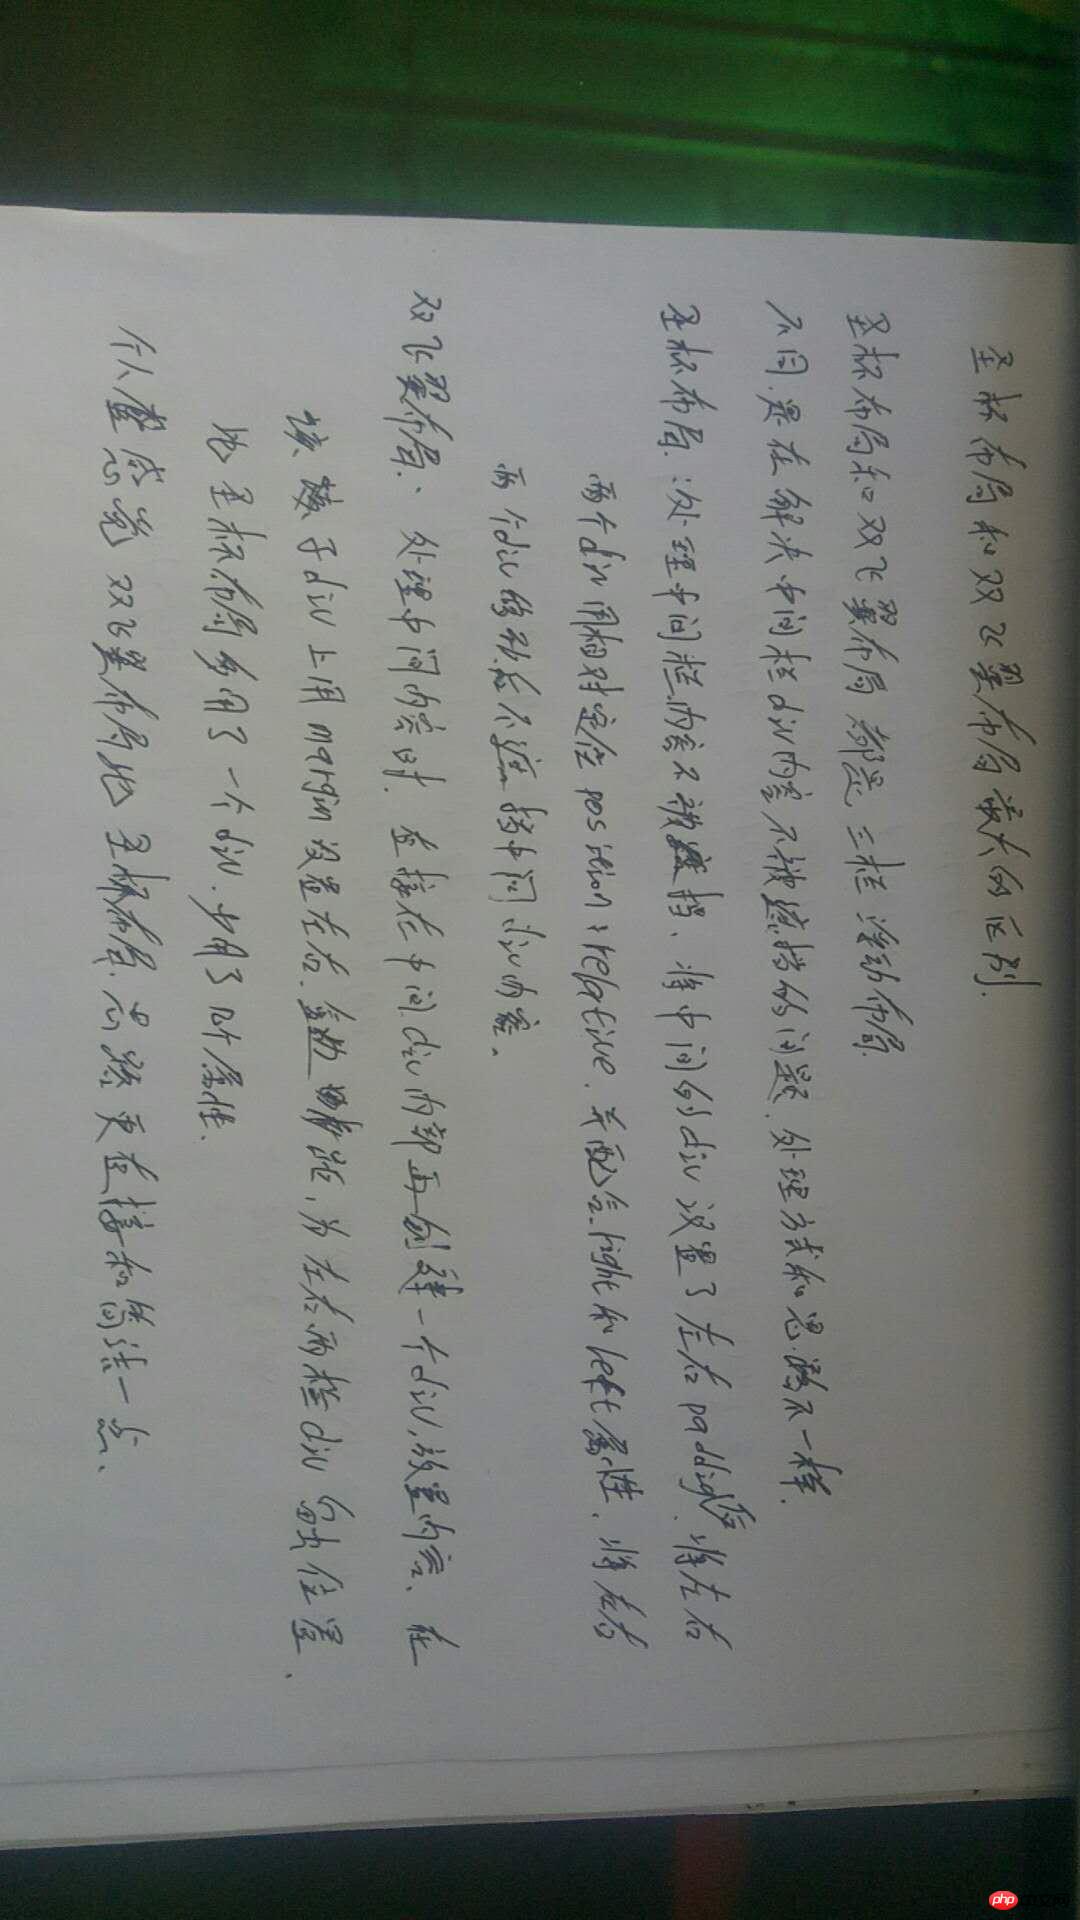 圣杯布局和双飞翼布局最大的区别.
圣杯布局和双飞翼布局都是三栏浮动布局.
不同是在解决中间栏div内容不被遮挡的问题.处理方式和思路不一样.
圣杯布局:处理中间栏内容不被遮挡、将中间的div设置了左右padding后.将左右
两个div用相对定位position:relative.并配合right和left属性.将左右
两个div移动后不遮挡中间div内容.
双飞翼布局:处理中间内容时.直接在中间div内部再创建一个div,放置内容、在
该子div上用margin设置左右,为左右两栏div留出位置、
比圣杯布局多用了一个div.少用了 属性.
个人感觉双飞翼布局比圣杯布局.思路更直接和简洁一点.
php